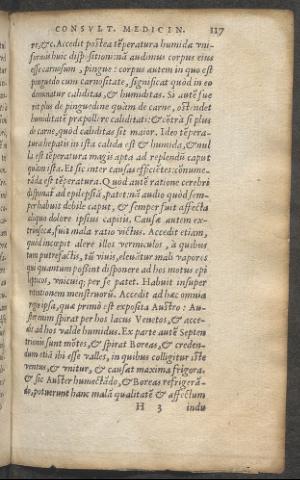 CONSVLT. MEDICIN. 117
re, &c. Accedit postea tẽperatura humida vni-
formis huic disp sitioni: nã audimus corpus eius
esse carnosum, pingue: corpus autem in quo est
pinguedo cum carnositate, significat quòd in eo
dominatur caliditas, & humiditas. Si autẽ fue
rit plus de pinguedine quàm de carne, ostendet
humiditatẽ præpollere caliditati: & cõtrà si plus
de carne, quòd caliditas sit maior. Ideo tẽpera-
tura hepatis in ista calida est & humida, & nul
la est tẽperatura magis apta ad replendũ caput
quàm ista. Et sic inter causas efficiẽtes cõnume-
rãda est tẽperatura. Quòd autẽ ratione cerebri
disponat ad epilepsiã, patet: nã audio quòd sem-
per habuit debile caput, & semper fuit affecta
aliquo dolore ipsius capitis. Causæ autem ex-
trinsecæ, fuit mala ratio victus. Accedit etiam,
quòd incœpit alere illos vermiculos, à quibus
tum putrefactis, tũ viuis, eleuãtur mali vapores
qui quantum possent disponere ad hos motus epi
lepticos, vnicuiq; per se patet. Habuit insuper
retentionem menstruorũ. Accedit ad hæc omnia
regio ipsa, quæ primò est exposita Austro: Au-
ster enim spirat per hos lacus Venetos, & acce-
dit ad hos valde humidus. Ex parte autẽ Septen
trionis sunt mõtes, & spirat Boreas, & creden-
dum etiã ibi esse valles, in quibus colligitur iste
ventus, & vnitur, & causat maxima frigora.
& sic Auster humectãdo, & Boreas refrigerã-
do, potuerunt hanc malã qualitatẽ & affectum
H 3 indu